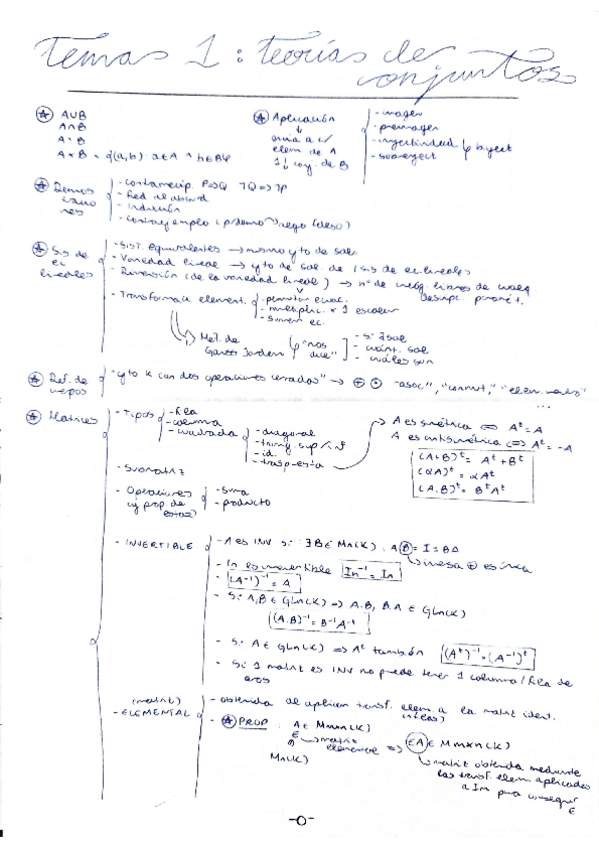 Temas 1: teorías de
conjuntos
A∪B
A∩B
A·B
A×B = {(a,b) a∈A ∧ b∈B}
Aplicación
↓
envía a c/
elem. de A
1 conj. de B
- imagen
- preimagen
- inyectividad
- sobreyect
} biyect
Demos
tracio
nes
- contrarrecíp. P⇒Q ¬Q⇒¬P
- Red. al absurd
- Inducción
- Contraejemplo
Sis de
ec
lineales
- Sist. equivalentes → mismo cjto de sol.
- Variedad lineal → cjto de sol de 1 sis de ec. lineales
- Dimensión (de la variedad lineal) → nº de incóg. libres de
- Transformac element.
- permutar ecuac.
- multiplic. × 1 escalar
- sumar ec.
Met. de
Gauss Jordan
"nos
dice"
- si ∃ sol
- cuánt. sol
- cuáles son
Def. de
cuerpos
"cjto K con dos operaciones cerradas" → ⊕ ⊙ "asoc", "conmut", "elem.
...
Matrices
- Tipos
- fila
- columna
- cuadrada
- diagonal
- triang. sup/inf
- id.
- traspuesta
→ A es simétrica ⇔ Aᵗ = A
A es antisimétrica ⇔ Aᵗ = -A
(A+B)ᵗ = Aᵗ + Bᵗ
(αA)ᵗ = αAᵗ
(A.B)ᵗ = BᵗAᵗ
- Submatriz
- Operaciones
(y prop. de
estas)
- suma
- producto
- INVERTIBLE
- A es INV si ∃B∈Mn(K) . AB = I = BA
↳ inversa ⊕ es única
- In es invertible In⁻¹ = In
- (A⁻¹)⁻¹ = A
- Si A,B ∈ GLn(K) ⇒ A.B, B.A ∈ GLn(K)
(A.B)⁻¹ = B⁻¹A⁻¹
- Si A ∈ GLn(K) ⇒ Aᵗ también (Aᵗ)⁻¹ = (A⁻¹)ᵗ
- Si 1 matriz es INV no puede tener 1 columna/fila de
ceros
(matriz)
- ELEMENTAL
- obtenida al aplicar transf. elem. a la matriz ident.
(filas)
- PROP. A∈ Mmxn(K)
E → matriz
elemental
Mn(K)
⇒ EA ∈ Mmxn(K)
↳ matriz obtenida mediante
las transf. elem. aplicadas
a Im para conseguir
E
-0-